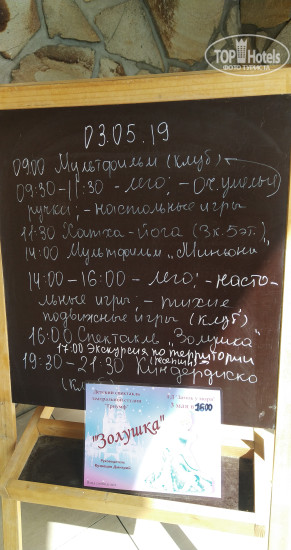 TOP Hotels
ФОТО ТУРИСТА
03.05.19
09:00 Мультфильм (клуб)
09:30-11:30 - лего; - Оч.умелые
ручки; - настольные игры
11:30 Хатха-йога (3к.5эт.)
14:00 Мультфильм „Миньоны"
14:00-16:00 - лего; - насто-
льные игры; - тихие
подвижные игры (клуб)
16:00 Спектакль "Золушка"
17:00 Экскурсия по территории
19:30-21:30 Киндердиско
Детский спектакль
театральной студии
"Золушка"
3 мая в 16:00